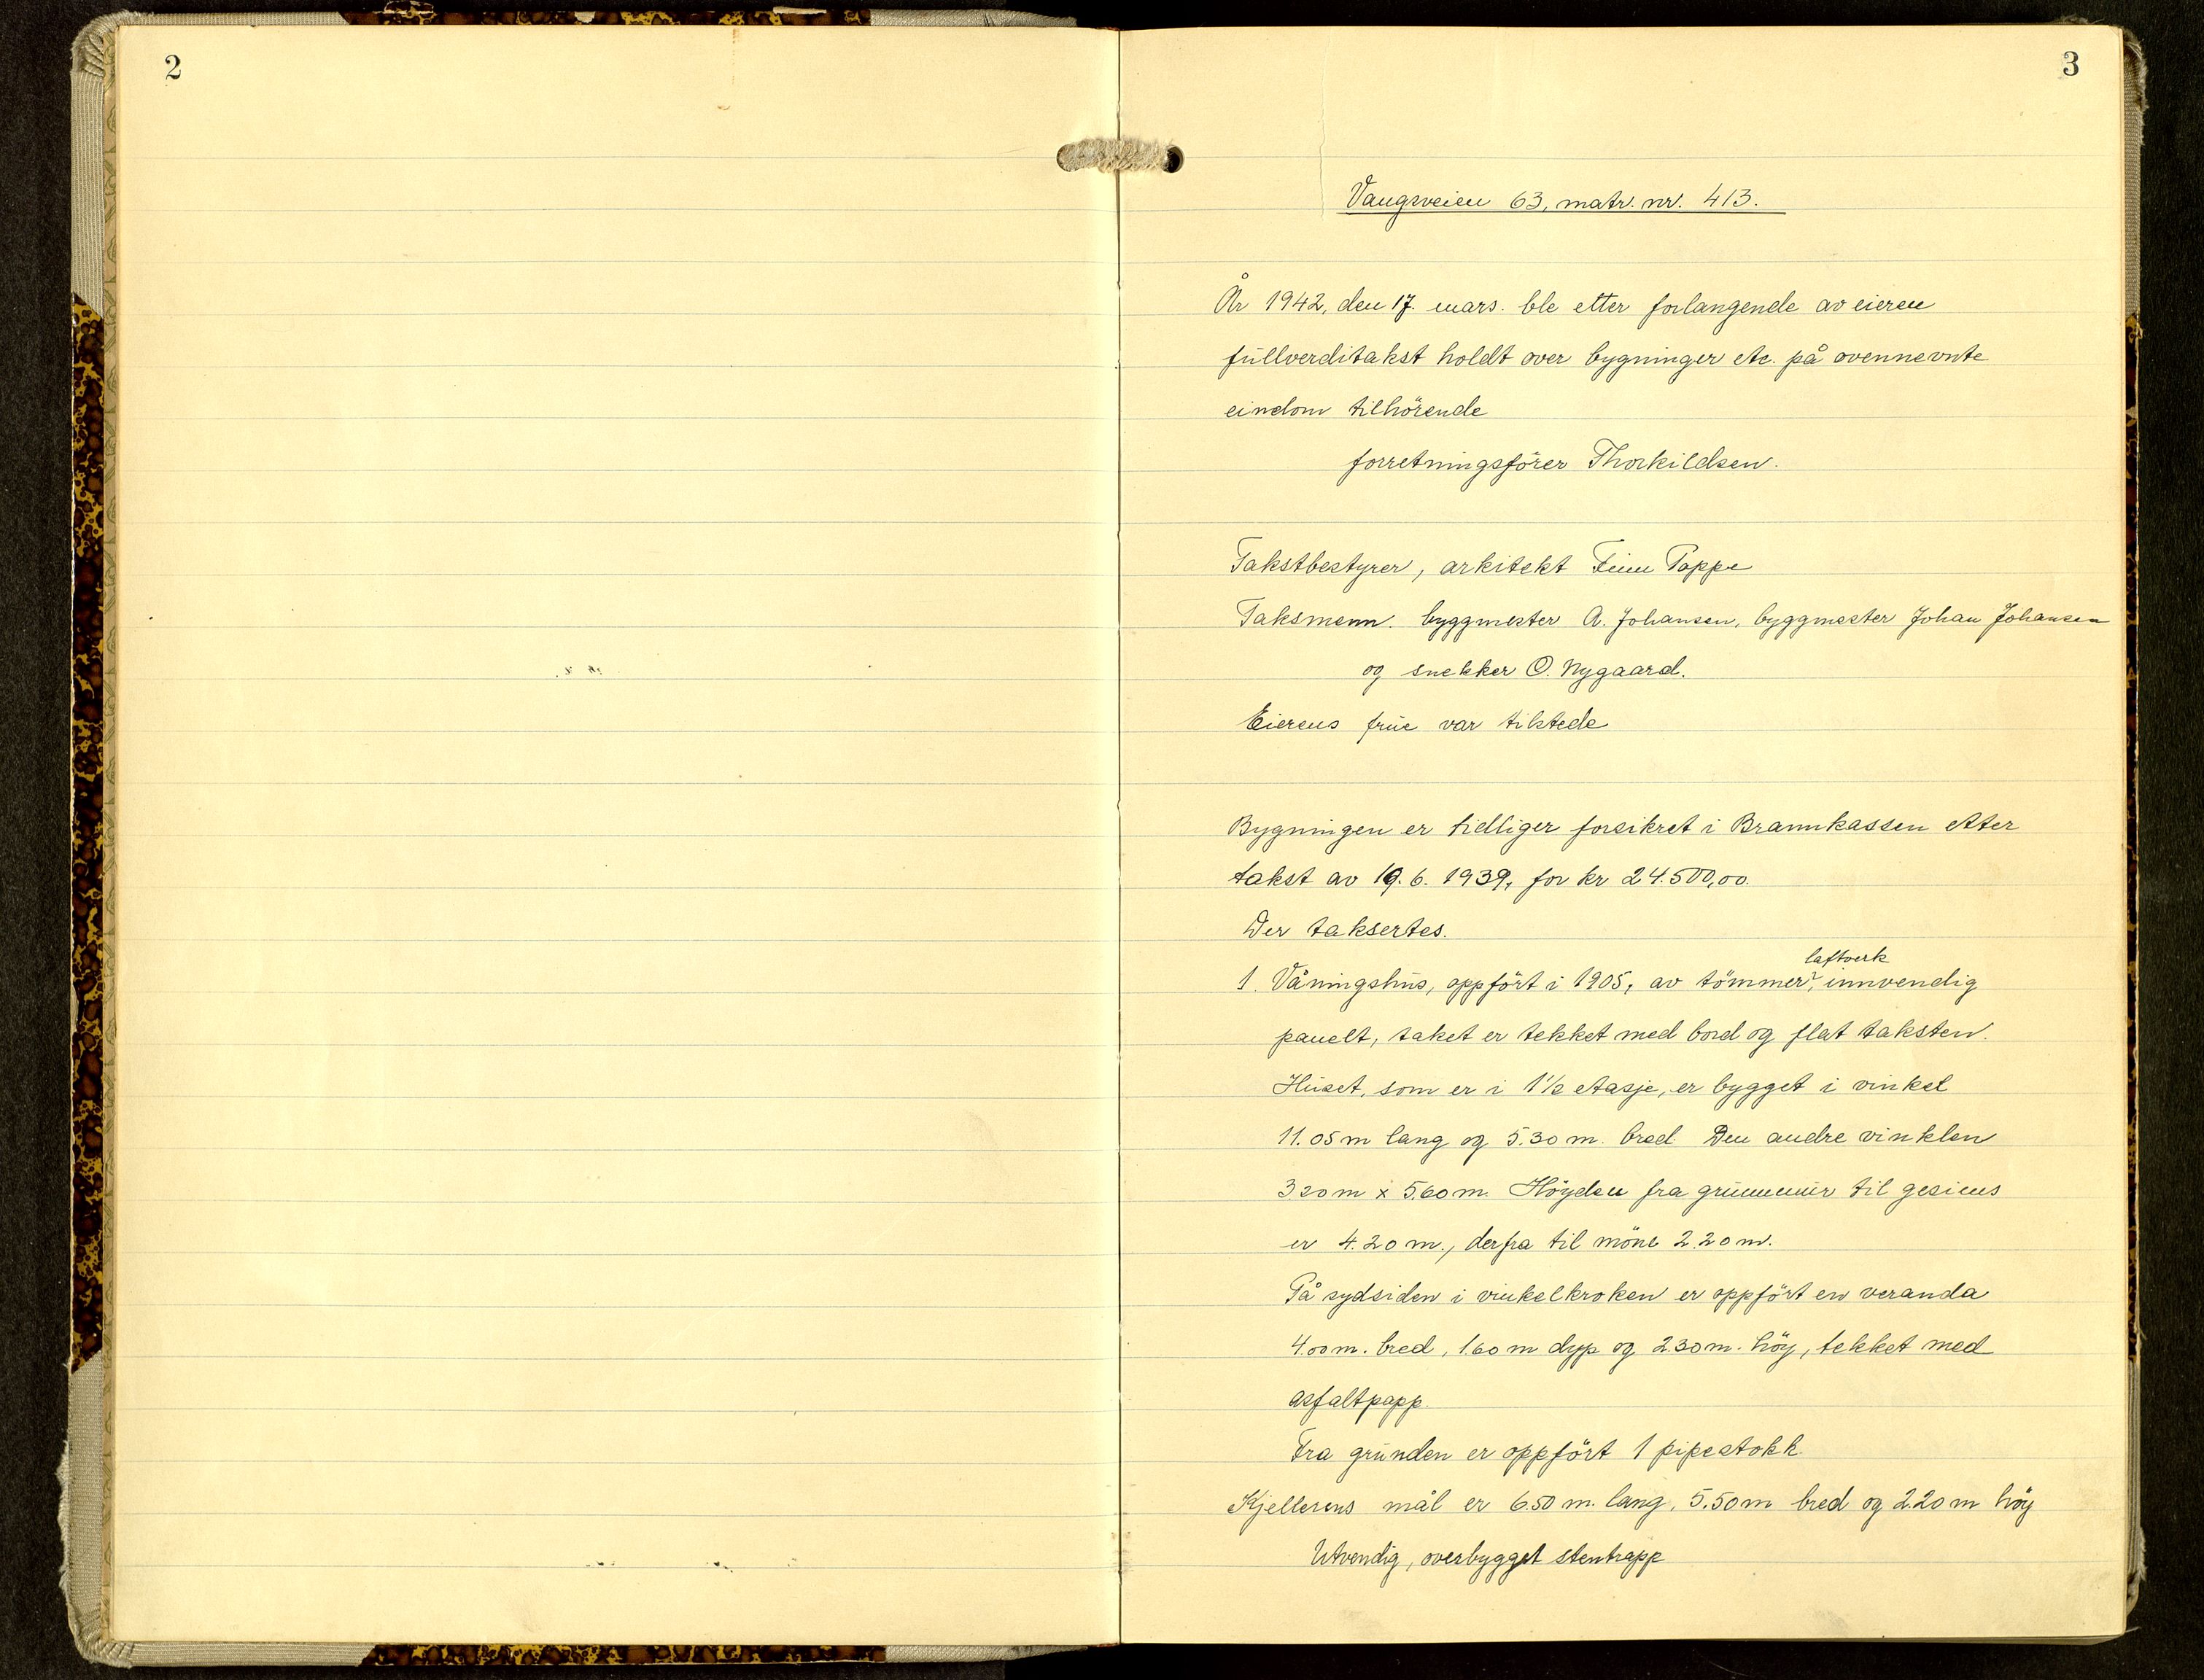 2
3
Vangsveien 63, matr. nr. 413.
År 1942, den 17. mars. ble etter forlangende av eieren
fullverditakst holdt over bygninger etc. på ovennevnte
eindom tilhörende
forretningsförer Thorkildsen.
Takstbestyrer, arkitekt Finn Poppe
Taksmenn. byggmester A. Johansen, byggmester Johan Johansen
og snekker O. Nygaard.
Eierens frue var tilstede
Bygningen er tidliger forsikret i Brannkassen etter
takst av 19. 6. 1939, for kr 24.500,00.
Der taksertes.
laftverk
1. Våningshus, oppfört i 1905, av tömmer, innvendig
panelt, taket er tekket med bord og flat taksten.
Huset, som er i 1 1/2 etasje, er bygget i vinkel
11.05 m lang og 5.30 m. bred. Den andre vinklen
3.20 m x 5.60 m. Höyden fra grunnmur til gesims
er 4.20 m., derfra til möne 2.20 m.
På sydsiden i vinkelkroken er oppfört en veranda
4.00 m. bred, 1.60 m dyp og 2.30 m. höy, tekket med
asfaltpapp.
Fra grunden er oppfört 1 pipestokk.
Kjellerens mål er 6.50 m. lang, 5.50 m bred og 2.20 m höy
Utvendig, overbygget stentrapp